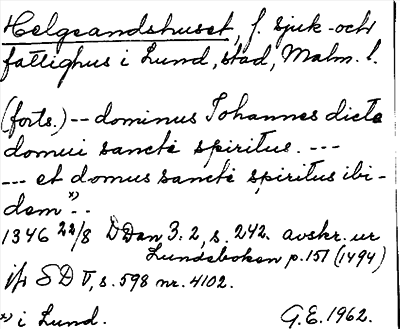 Helgeandshuset, f. sjuk- och
fattighus i Lund, stad, Malm. l.
(forts.) -- dominus Johannes dicte
domui sancti spiritus. ---
--- et domus sancti spiritus ibi-
dem x). -
1346 22/8 DDan 3:2, s. 242. avskr. ur
Lundeboken p. 151 (1494)
jfr SD V, s. 598 nr. 4102.
x) i Lund. G.E. 1962.